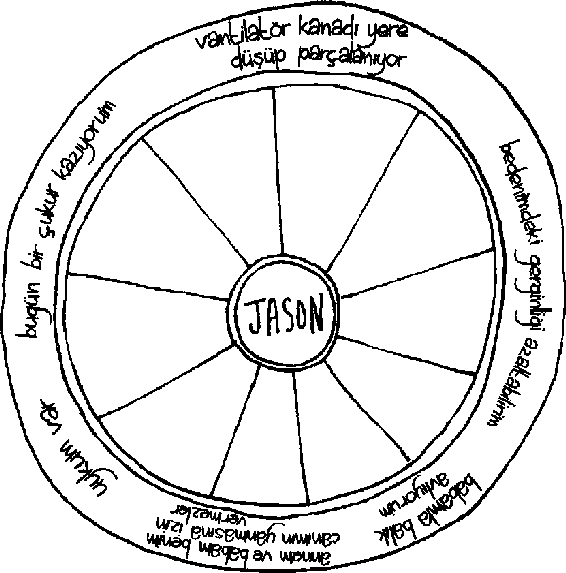 vantilatör kanadı yere
düşüp parçalanıyor
bedenimdeki gerginliği azaltabilirim
babamla balık
avlıyorum
annem ve babam benim
canımın yanmasına izin
vermezler
uykum var
bugün bir çukur kazıyorum
JASON